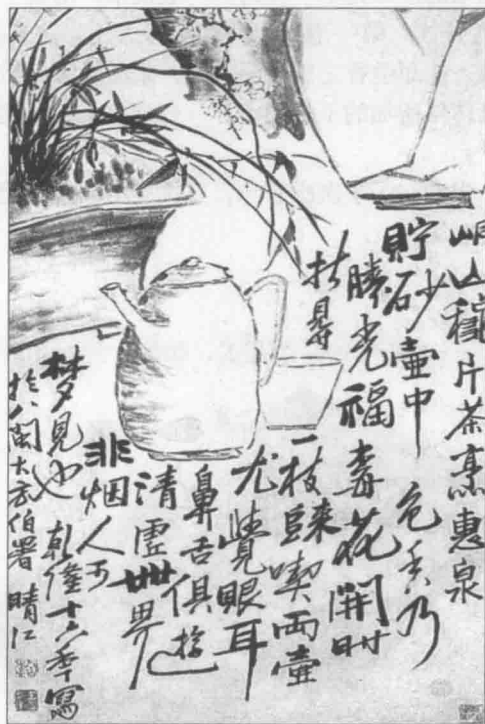 峒山穐片茶烹惠泉
貯砂壺中色香乃
勝光福梅花開時
折得一枝歸喫兩壺
尤覺眼耳
鼻舌俱遊
清虛世界
非烟人可
梦見也乾隆十六年寫
於八閩大方伯署晴江